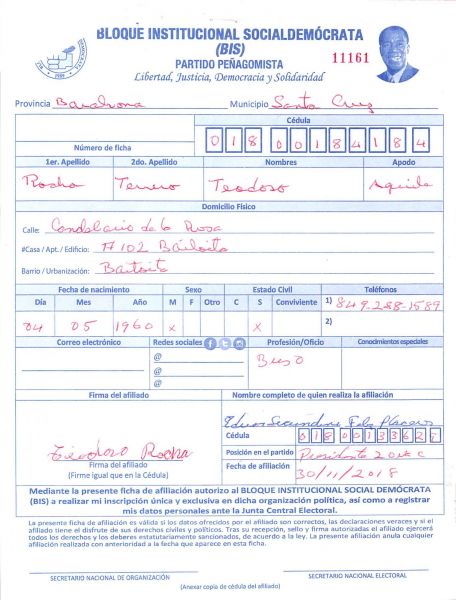 BLOQUE INSTITUCIONAL SOCIALDEMÓCRATA
(BIS)
PARTIDO PEÑAGOMISTA
11161
Libertad, Justicia, Democracia y Solidaridad
Provincia Barahona Municipio Santa Cruz
Cédula
Número de ficha 018 0018418 4
1er. Apellido 2do. Apellido Nombres Apodo
Rocha Terrero Teodoso Aguila
Domicilio Físico
Calle: Candelario de la Rosa
#Casa / Apt. / Edificio: 102
Barrio / Urbanización:
Fecha de nacimiento Sexo Estado Civil Teléfonos
Día Mes Año M F Otro C S Conviviente 1) 849-288-1589
04 05 1960 x x 2)
Correo electrónico Redes sociales Profesión/Oficio Conocimientos especiales
@ Buzo
@
@
Firma del afiliado Nombre completo de quien realiza la afiliación
Cédula 018 0013362 7
Teodoso Rocha Posición en el partido Presidente
Firma del afiliado Fecha de afiliación 30/11/2018
(Firme igual que en la Cédula)
Mediante la presente ficha de afiliación autorizo al BLOQUE INSTITUCIONAL SOCIAL DEMÓCRATA
(BIS) a realizar mi inscripción única y exclusiva en dicha organización política, así como a registrar
mis datos personales ante la Junta Central Electoral.
La presente ficha de afiliación es válida si los datos ofrecidos por el afiliado son correctos, las declaraciones veraces y si el
afiliado tiene el disfrute de sus derechos civiles y políticos. Tras su recepción, sello y firma autorizadas el afiliado ejercerá
todos los derechos y los deberes estatutariamente sancionados, de acuerdo a la ley. La presente afiliación anula cualquier
afiliación realizada con anterioridad a la fecha que aparece en esta ficha.
SECRETARIO NACIONAL DE ORGANIZACIÓN SECRETARIO NACIONAL ELECTORAL
(Anexar copia de cédula del afiliado)